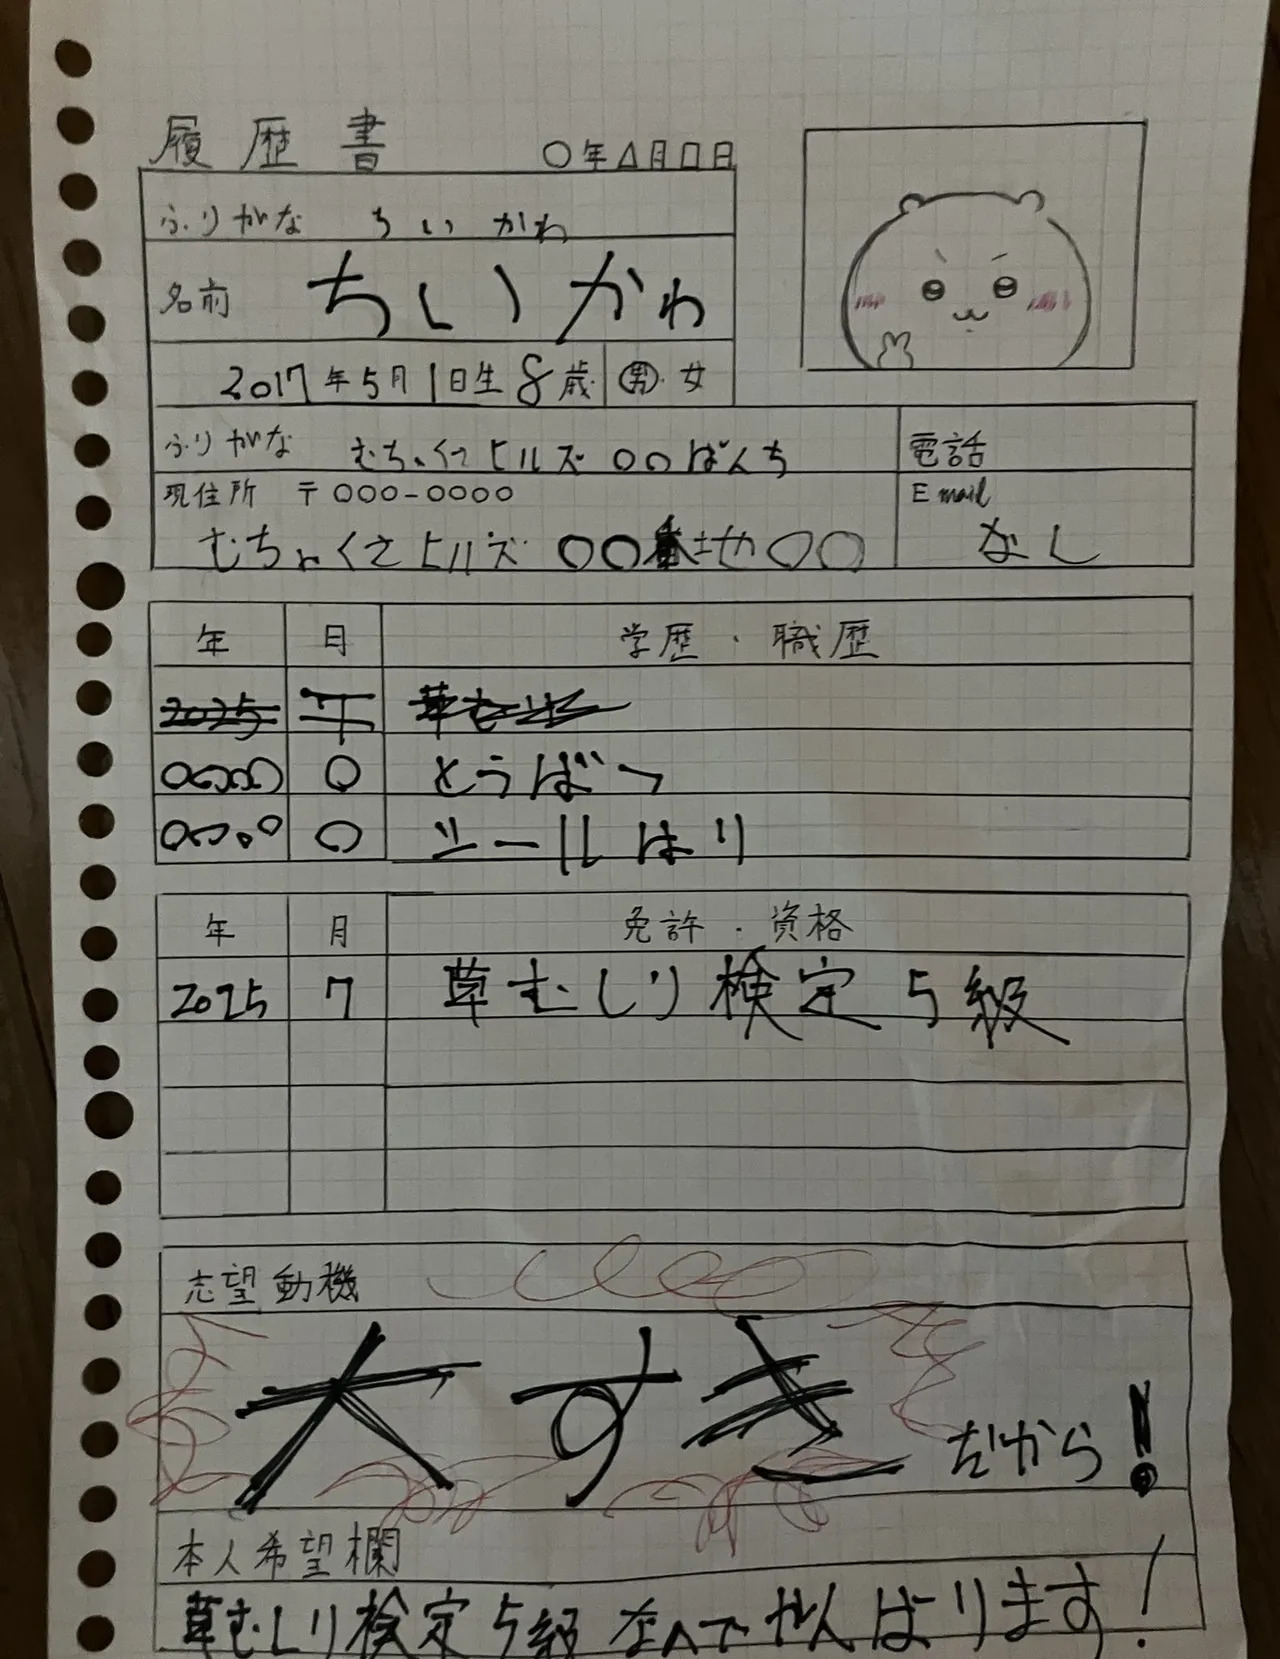 履歴書 ○年△月□日
ふりがな ちいかわ
名前 ちいかわ
2017年5月1日生 8歳 男・女
ふりがな むちゃくさヒルズ〇〇ばんち
電話
現住所 〒000-0000
Email
むちゃくさヒルズ 〇〇番地〇〇
なし
年 日 学歴・職歴
2025 7 草むしり
〇〇〇〇 〇 とうばつ
〇〇〇〇 〇 シールはり
年 月 免許・資格
2025 7 草むしり検定5級
志望動機
大すきだから!
本人希望欄
草むしり検定5級なんでがんばります!